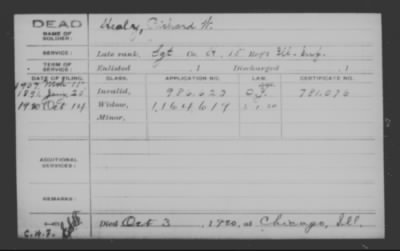 DEAD
NAME OF SOLDIER: Healy, Richard W.
SERVICE: Late rank, Sgt Co. A, 15 Regt Ill. Inf.
TERM OF SERVICE: Enlisted , 1 Discharged , 1
DATE OF FILING. CLASS. APPLICATION NO. LAW. CERTIFICATE NO.
1907 Mch 11
1891 Jan 20 Invalid, 980.623 781.070
1920 Oct 14 Widow, 1,164,614
Minor,
ADDITIONAL SERVICES:
REMARKS:
Died Oct 3, 1920, at Chicago, Ill.